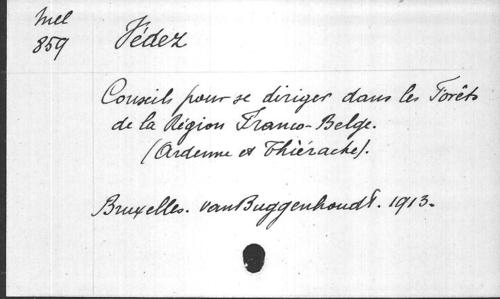 Mel
859
Védez
Conseils pour se diriger dans les Forêts
de la Région Franco-Belge.
(Ardenne et Thiérache).
Bruxelles. vanBuggenhoudt. 1913.